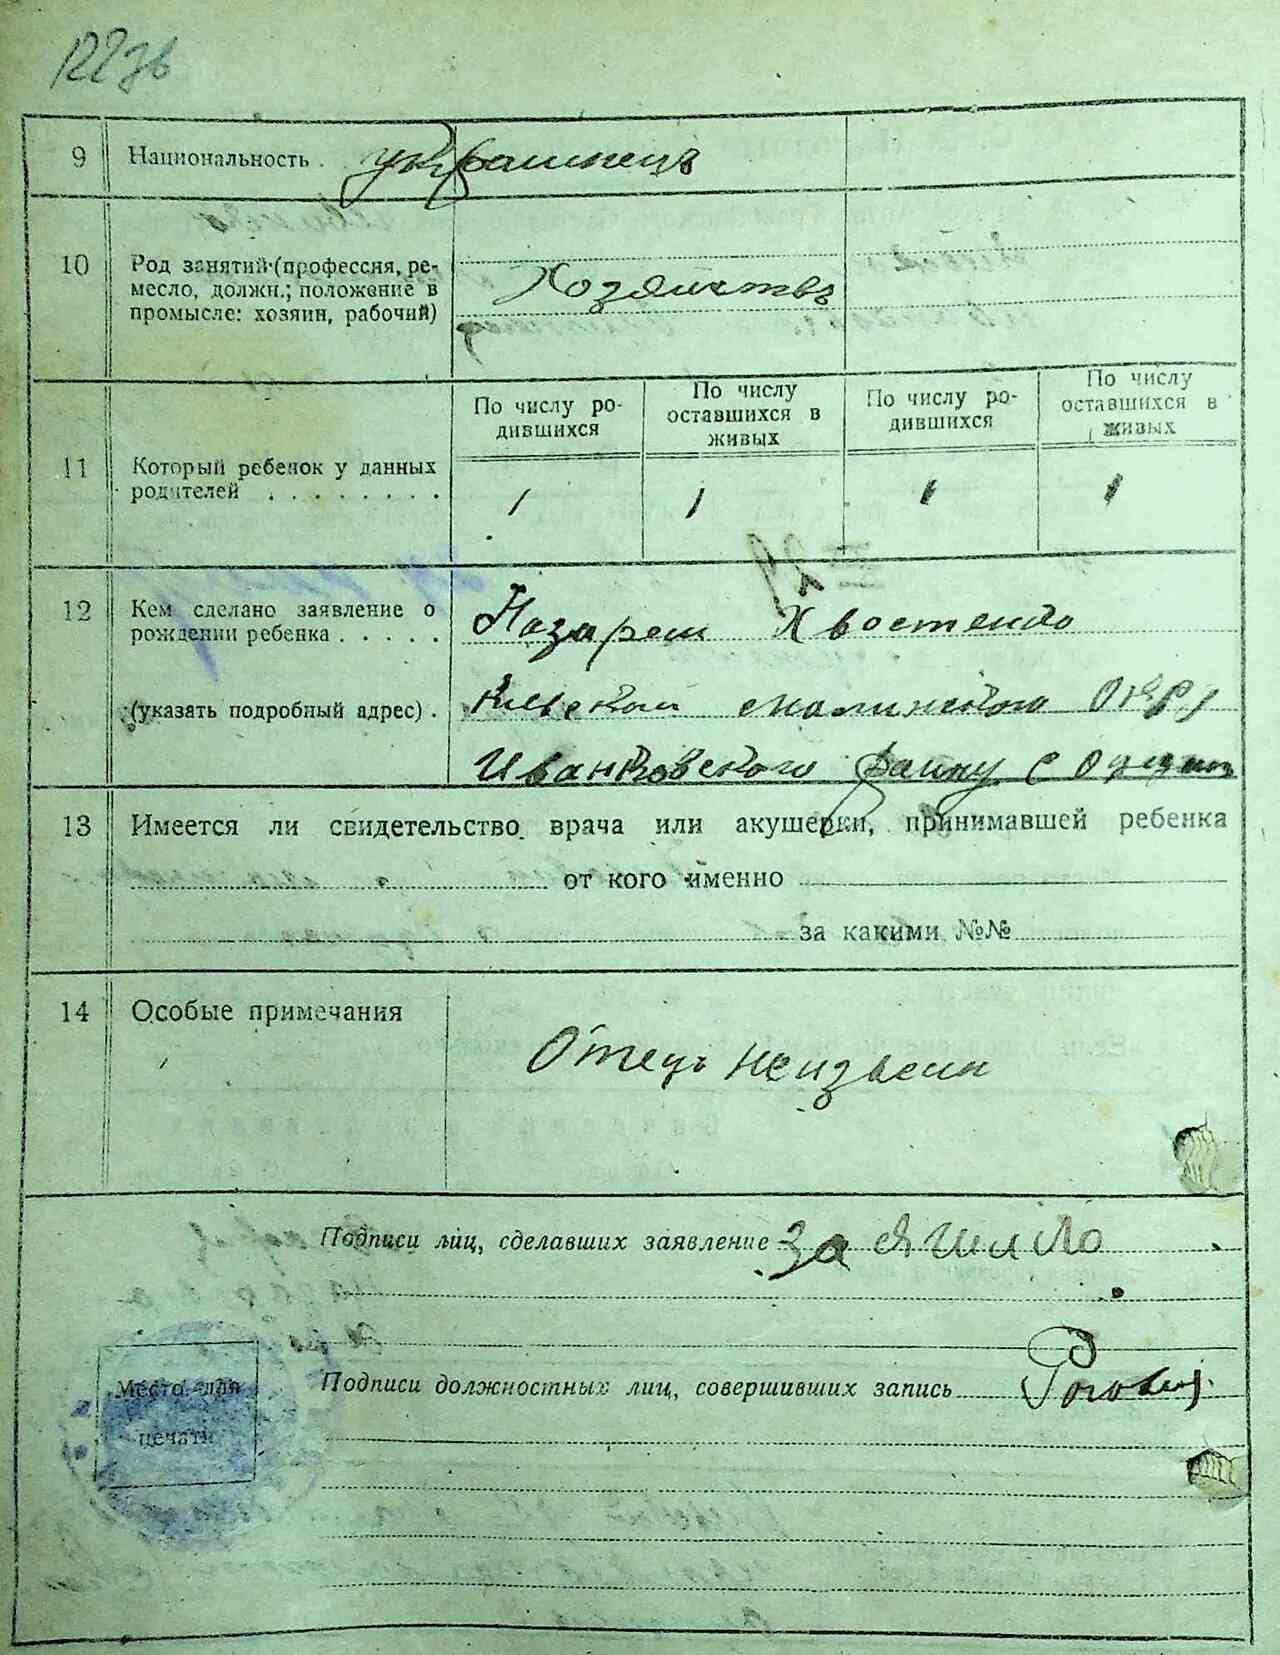 122 зв
9 Национальность . украинець
10 Род занятий (профессия, ре-
месло, должн.; положение в
промысле: хозяин, рабочий)
Хозяйство
11 Который ребенок у данных
родителей . . . . . . . .
По числу ро-
дившихся
По числу
оставшихся в
живых
По числу ро-
дившихся
По числу
оставшихся в
живых
1 1 1 1
12 Кем сделано заявление о
рождении ребенка . . . . .
(указать подробный адрес) .
Хвостенко
Иванковского району с
13 Имеется ли свидетельство врача или акушерки, принимавшей ребенка
от кого именно
за какими №№
14 Особые примечания
Отець неизвесин
Подписи лиц, сделавших заявление за
Подписи должностных лиц, совершивших запись
Место для
печати